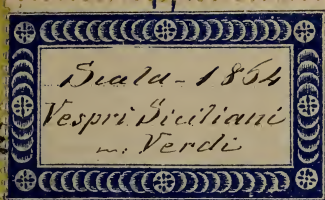 Scala - 1864
Vespri Siciliani
m: Verdi